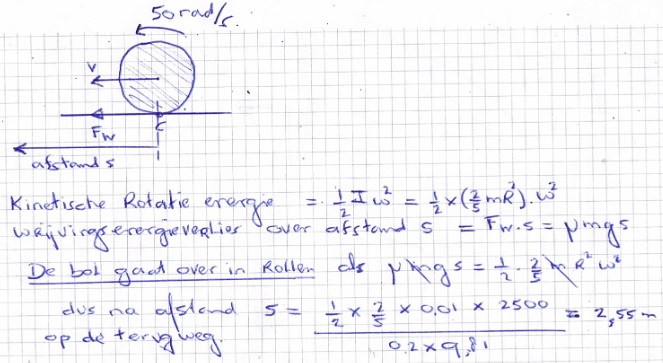 50 rad/s.
v
Fw
c
afstand s
Kinetische Rotatie energie = ½ I ω² = ½ x (⅖ mR²). ω²
wrijvingsenergieverlies over afstand s = Fw.s = μmgs
De bol gaat over in Rollen als μmgs = ½ . ⅖ m R² ω²
dus na afstand s = ½ x ⅖ x 0,01 x 2500 = 2,55 m
op de terugweg.
0,2 x 9,81